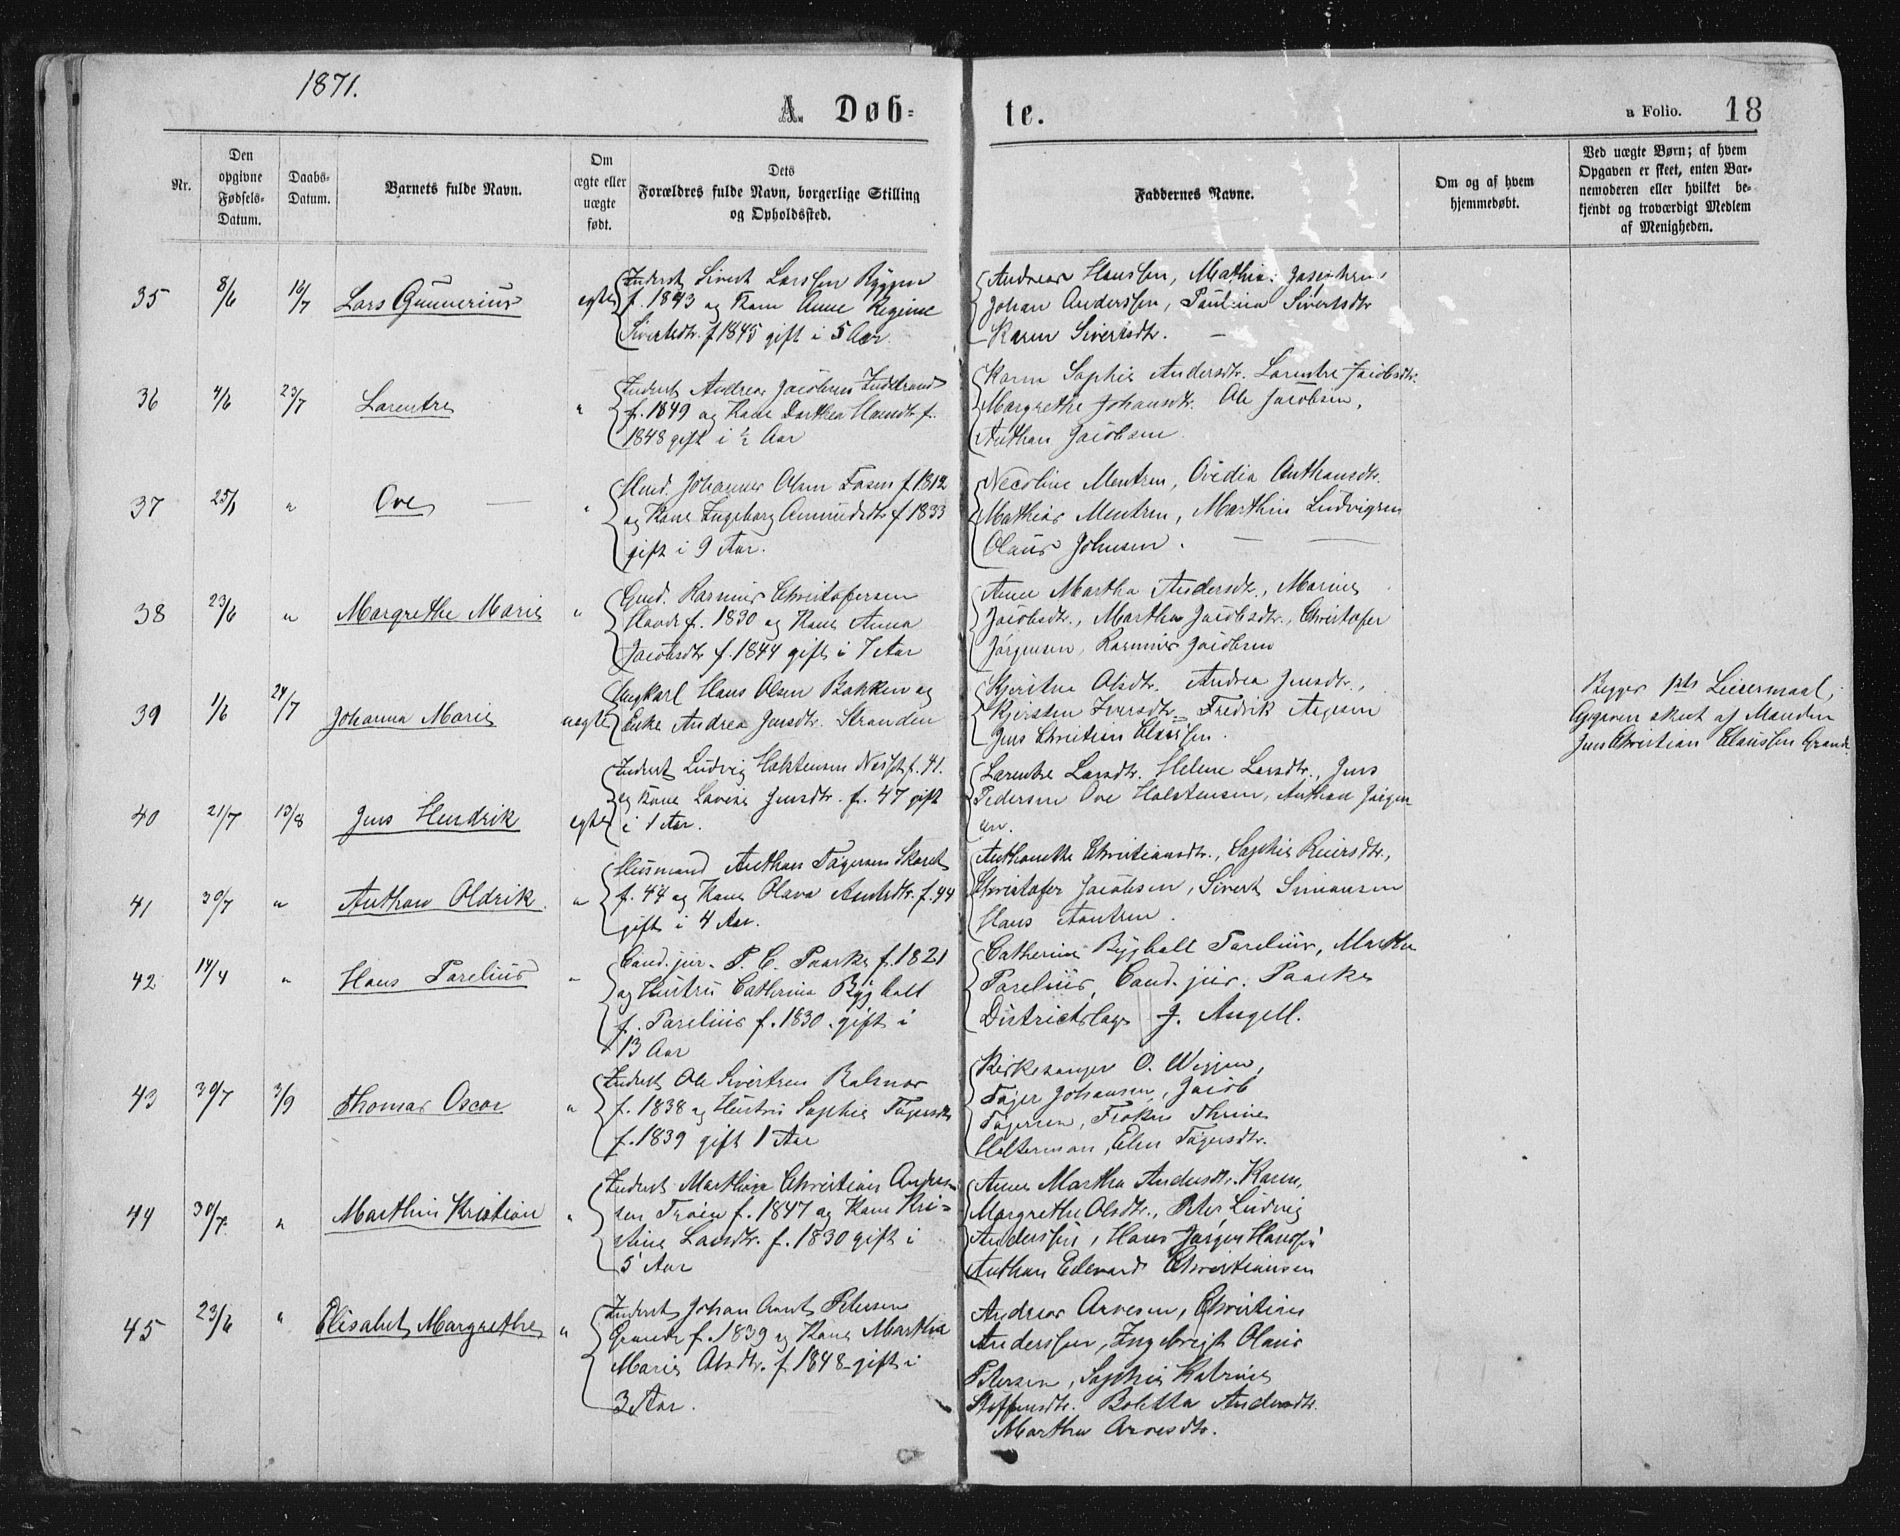 1871.
A. Døb-
te.
a Folio. 18
Nr.
Den
opgivne
Fødsels-
Datum.
Daabs-
Datum.
Barnets fulde Navn.
Om
ægte eller
uægte
født.
Dets
Forældres fulde Navn, borgerlige Stilling
og Opholdssted.
Faddernes Navne.
Om og af hvem
hjemmedøbt.
Ved uægte Børn; af hvem
Opgaven er skeet, enten Bar-
nemoderen eller hvilket be-
kjendt og troværdigt Medlem
af Menigheden.
35 8/6 16/7 Lars Gunnerius egte
Inderst Sivert Larssen
f. 1843 og Kone Anne Regine
Sivertsdtr. f 1845 gift i 5 Aar.
Andreas Hanssen, Mathias Josephsen
Johan Anderssen, Paulina Sivertsdtr
Karen Sivertsdtr. —
36 4/6 23/7 Larentse "
Inderst Andreas Jacobsen
f. 1849 og Kone Dorthea Hansdtr f.
1848 gift i ½ Aar
Karen Sophie Andersdtr. Larentse Jacobsdtr.
Margrethe Johansdtr. Ole Jacobsen,
Anthon Jacobsen
37 25/6 " Ove — "
Johannes Olsen f 1812
og Kone Ingeborg f 1833
gift i 9 Aar.
Necoline Mentsen, Ovidia Anthonsdtr.
Mathias Mentsen, Marthin Ludvigsen
Olaus Johnsen. — —
38 23/6 " Margrethe Marie "
Gmd. Rasmus Christofersen
f. 1830 og Kone Anna
Jacobsdtr f. 1844 gift i 7 Aar
Anne Martha Andersdtr., Marine
Jacobsdtr., Martha Jacobsdtr., Christofer
Jørgensen, Rasmus Jacobsen
39 1/6 24/7 Johanna Marie uegte
Ungkarl Hans Olsen Bakken og
Enke Andrea Jensdtr. Stranden
Olsdtr. Andrea Jensdtr.,
Kjersten Iversdtr. Fredrik
Jens Christian Claussen.
Begges 1ste Leiermaal,
Opgaven skeet af Manden
Jens Christian Claussen Grande
40 21/7 13/8 Jens Hendrik egte
Inderst Ludvig f. 41.
og Kone Lovise Jensdtr. f. 47 gift
i 1 Aar.
Larentse Larsdtr. Helene Larsdtr., Jens
Pedersen Ove Holstensen, Anthon Jørgen
sen.
41 30/7 " Anthon Oldrik "
Husmand Anthon Tøgersen Skaret
f. 44 og Kone Olava f. 44
gift i 4 Aar.
Anthonette Christiansdtr., Sophie Reiersdtr.,
Christofer Jacobsen, Sivert Simonsen
Hans Arntsen.
42 14/4 " Hans Parelius "
Cand. jur. P. C. Paaske f. 1821
og Hustru Cathrina Bÿgball
f. Parelius f. 1830. gift i
13 Aar
Catherine Bÿgball Parelius, Martha
Parelius, Cand. jur. Paaske
Districtslæge J. Angell.
43 30/7 3/9 Thomas Oscar "
Inderst Ole Sivertsen Balsnes
f. 1838 og Hustru Sophie Tøgersdtr
f. 1839 gift 1 Aar
Kirkesanger O. Wiggen,
Tøger Johansen, Jacob
Tøgersen, Frøken Thrine
Holterman, Elen Tøgersdtr.
44 30/7. " Marthin Kristian "
Inderst Marthin Christian Anders-
sen f. 1847 og Kone Kri-
stine Larsdtr. f. 1830 gift i
5 Aar
Anne Martha Andersdtr. Karen,
Margrethe Olsdtr., Peter Ludvig
Anderssen, Hans Jørgen Hanssen
Anthon Edevard Christiansen
45 23/6 " Elisabet Margrethe "
Inderst Johan Arnt Petersen
Grande f. 1839 og Kone Martha
Marie Olsdtr. f 1848 gift i
3 Aar.
Andreas Arvesen, Christian
Anderssen, Ingebrigt Olaus
Petersen, Sophie Katrine
Steffensdtr. Boletta Andersdtr.
Martha Arvesdtr.